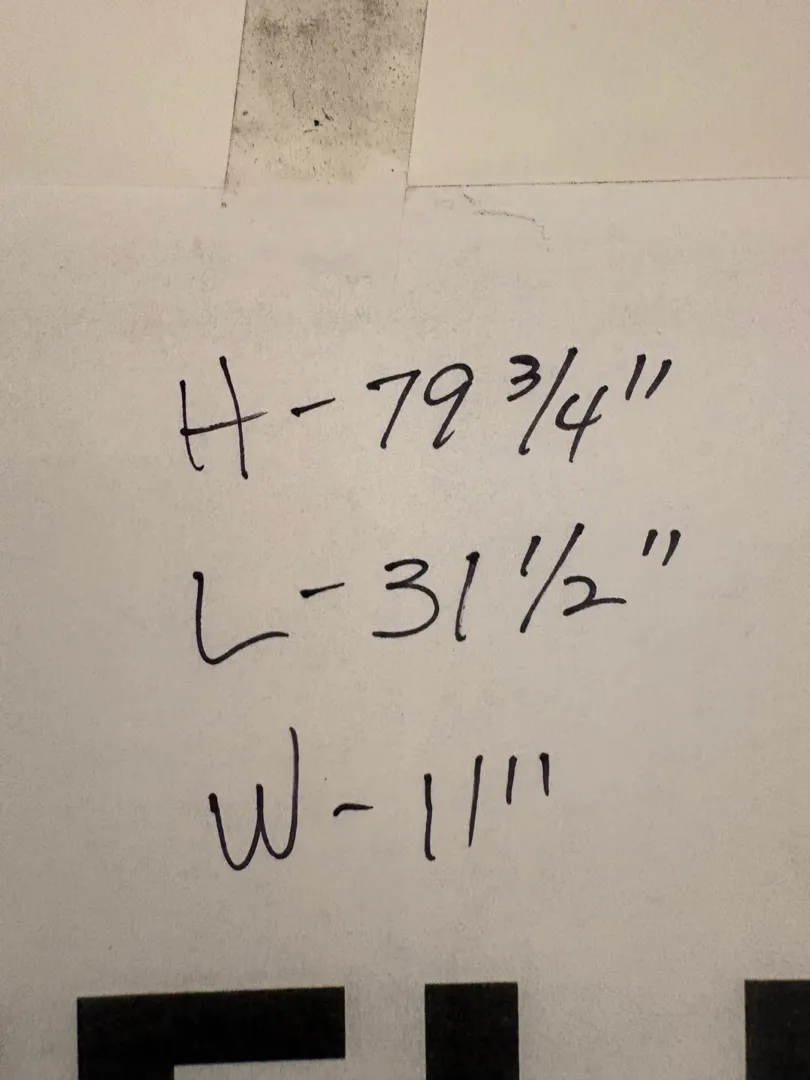 H - 79 3/4"
L - 31 1/2"
W - 11"